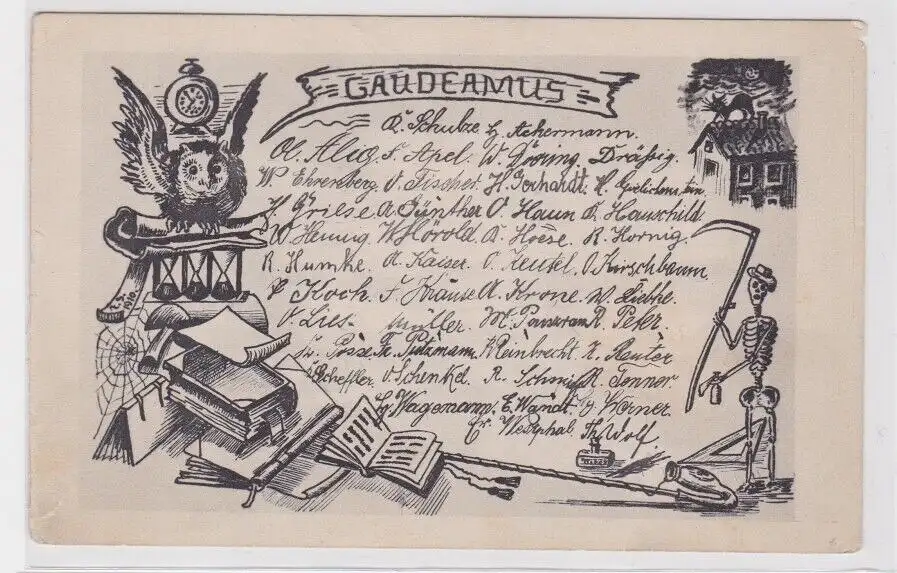 GAUDEAMUS
R. Schulze Hj. Achermann.
F. Apel. W. Döring. Dräßig.
W. Ehrenberg. O. Fischer. H. Gerhardt. H.
H. Griese. A. Günther O. Haun K. Hauschild.
W. Hennig W. Hörold. A. Hoese. R. Hornig.
R. Humke. A. Kaiser. O. Keukel. O. Kirschbaum
P. Koch. F. Krause A. Krone. W. Liebke.
O. Lies. Müller. M. Panzram R. Peter.
Posse Fr. Putzmann. K. Reinbrecht. K. Reuter
Scheffler. O. Schenkel. R. Schmidt R. Tenner
Hj. Wagemann. E. Wandt. Hj. Wörner.
Er. Westphal. Th. Wolf.